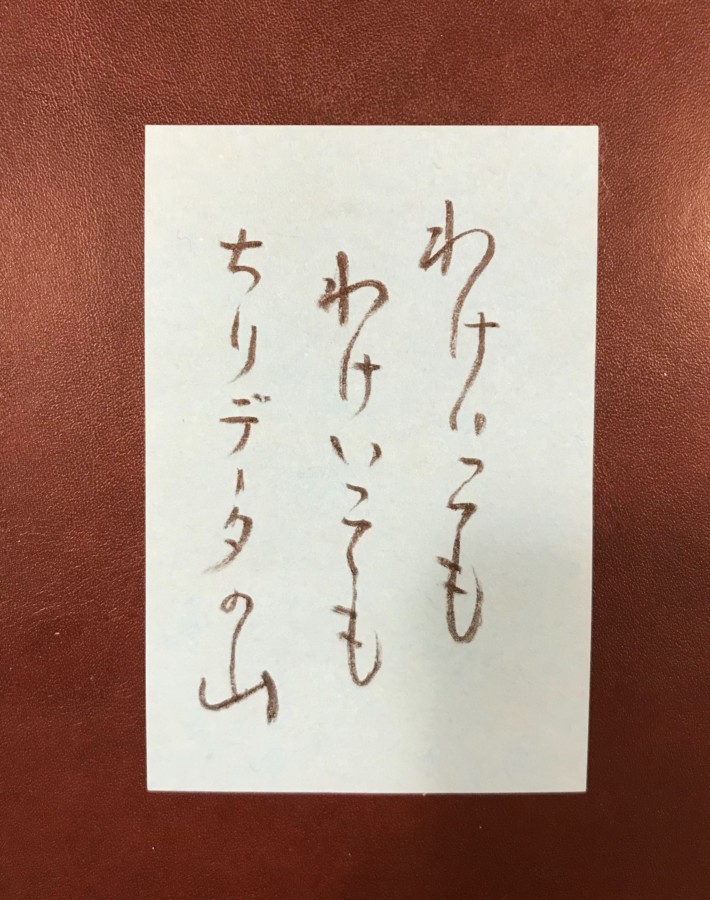 わけいても
わけいても
ちりデータの山